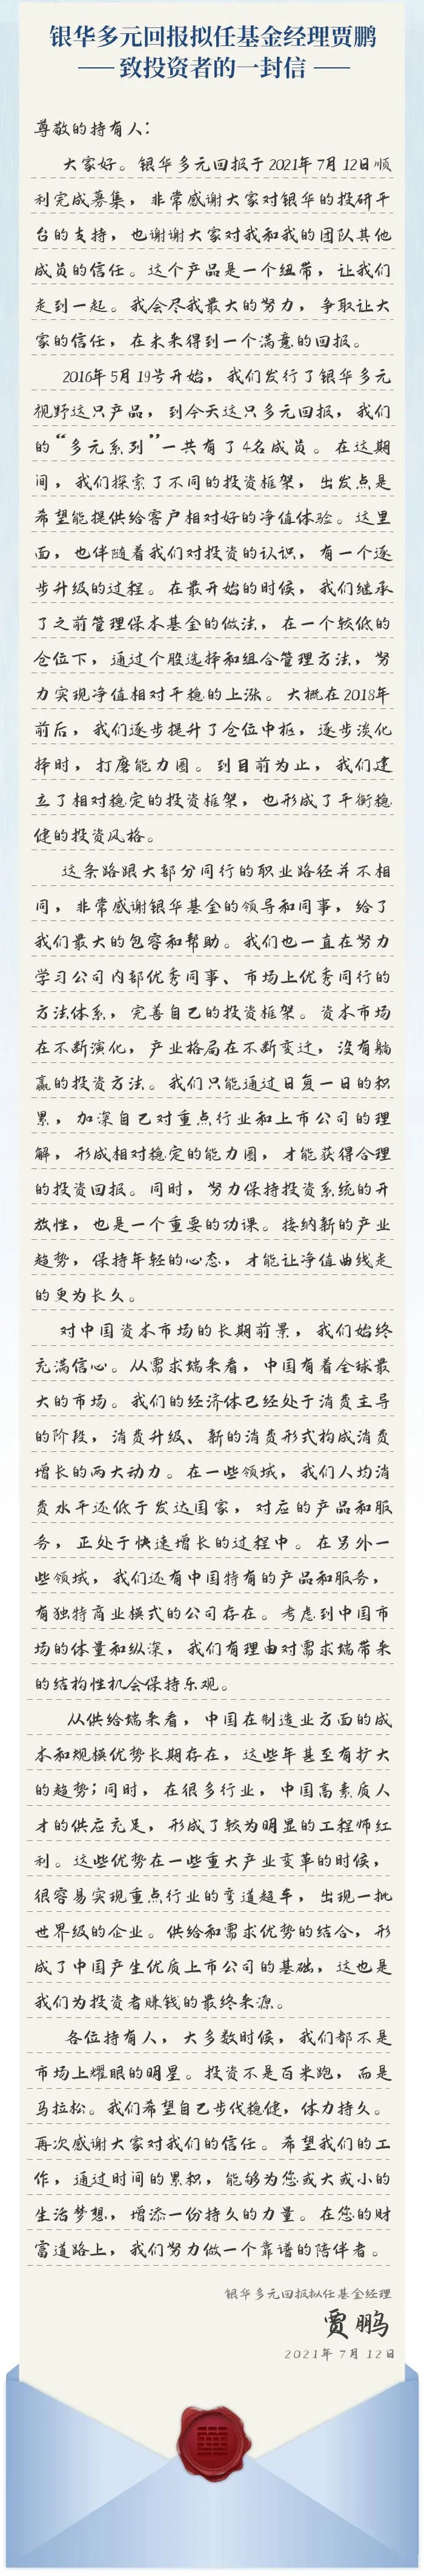 银华多元回报拟任基金经理贾鹏
——致投资者的一封信——
尊敬的持有人：
大家好。银华多元回报于2021年7月12日顺
利完成募集，非常感谢大家对银华的投研平
台的支持，也谢谢大家对我和我的团队其他
成员的信任。这个产品是一个纽带，让我们
走到一起。我会尽我最大的努力，争取让大
家的信任，在未来得到一个满意的回报。
2016年5月19号开始，我们发行了银华多元
视野这只产品，到今天这只多元回报，我们
的“多元系列”一共有了4名成员。在这期
间，我们探索了不同的投资框架，出发点是
希望能提供给客户相对好的净值体验。这里
面，也伴随着我们对投资的认识，有一个逐
步升级的过程。在最开始的时候，我们继承
了之前管理保本基金的做法，在一个较低的
仓位下，通过个股选择和组合管理方法，努
力实现净值相对平稳的上涨。大概在2018年
前后，我们逐步提升了仓位中枢，逐步淡化
择时，打磨能力圈。到目前为止，我们建
立了相对稳定的投资框架，也形成了平衡稳
健的投资风格。
这条路跟大部分同行的职业路径并不相
同，非常感谢银华基金的领导和同事，给了
我们最大的包容和帮助。我们也一直在努力
学习公司内部优秀同事、市场上优秀同行的
方法体系，完善自己的投资框架。资本市场
在不断演化，产业格局在不断变迁，没有躺
赢的投资方法。我们只能通过日复一日的积
累，加深自己对重点行业和上市公司的理
解，形成相对稳定的能力圈，才能获得合理
的投资回报。同时，努力保持投资系统的开
放性，也是一个重要的功课。接纳新的产业
趋势，保持年轻的心态，才能让净值曲线走
的更为长久。
对中国资本市场的长期前景，我们始终
充满信心。从需求端来看，中国有着全球最
大的市场。我们的经济体已经处于消费主导
的阶段，消费升级、新的消费形式构成消费
增长的两大动力。在一些领域，我们人均消
费水平还低于发达国家，对应的产品和服
务，正处于快速增长的过程中。在另外一
些领域，我们还有中国特有的产品和服务，
有独特商业模式的公司存在。考虑到中国市
场的体量和纵深，我们有理由对需求端带来
的结构性机会保持乐观。
从供给端来看，中国在制造业方面的成
本和规模优势长期存在，这些年甚至有扩大
的趋势；同时，在很多行业，中国高素质人
才的供应充足，形成了较为明显的工程师红
利。这些优势在一些重大产业变革的时候，
很容易实现重点行业的弯道超车，出现一批
世界级的企业。供给和需求优势的结合，形
成了中国产生优质上市公司的基础，这也是
我们为投资者赚钱的最终来源。
各位持有人，大多数时候，我们都不是
市场上耀眼的明星。投资不是百米跑，而是
马拉松。我们希望自己步伐稳健，体力持久。
再次感谢大家对我们的信任。希望我们的工
作，通过时间的累积，能够为您或大或小的
生活梦想，增添一份持久的力量。在您的财
富道路上，我们努力做一个靠谱的陪伴者。
银华多元回报拟任基金经理
贾鹏
2021年7月12日